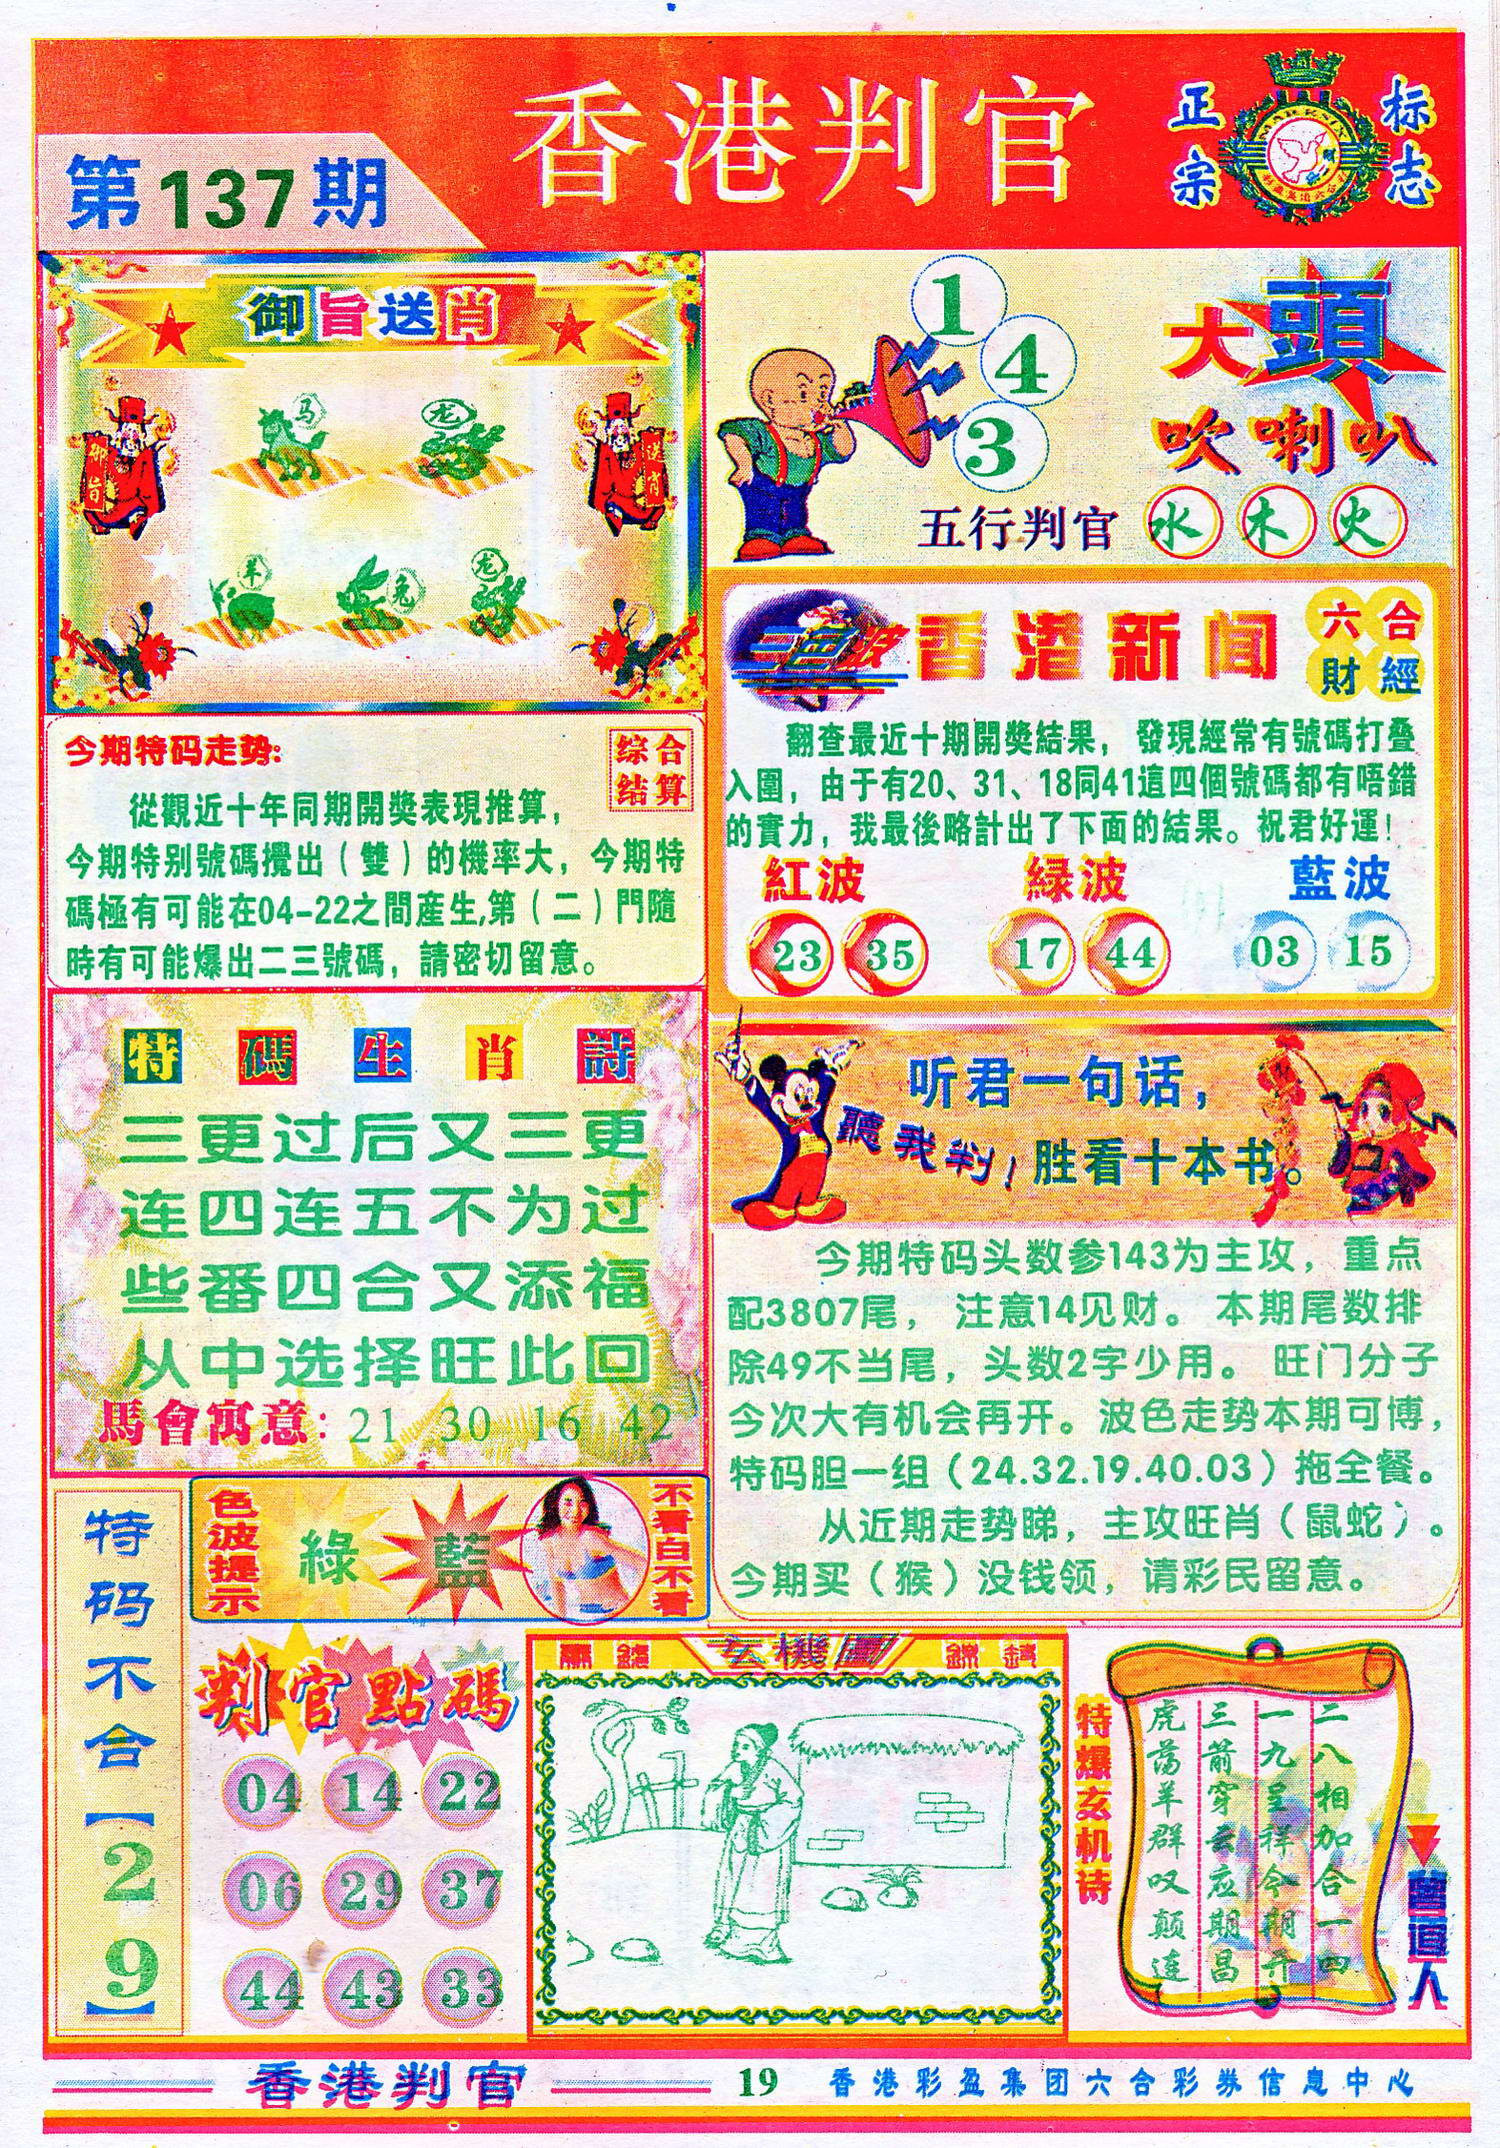 香港判官
第137期
正宗
标志
MARK SIX
御旨送肖
马
龙
御旨
送肖
羊
兔
龙
1
4
3
大頭
吹喇叭
五行判官 水 木 火
今期特码走势:
综合
结算
從觀近十年同期開獎表現推算，
今期特别號碼攪出（雙）的機率大，今期特
碼極有可能在04-22之間産生,第（二）門隨
時有可能爆出二三號碼，請密切留意。
三色波
香港新闻
六合
財經
翻查最近十期開獎結果，發現經常有號碼打叠
入圍，由于有20、31、18同41這四個號碼都有唔錯
的實力，我最後略計出了下面的結果。祝君好運!
紅波 緑波 藍波
23 35 17 44 03 15
特碼生肖詩
三更过后又三更
连四连五不为过
些番四合又添福
从中选择旺此回
馬會寓意: 21 30 16 42
听君一句话，
聽我判!
胜看十本书。
今期特码头数参143为主攻，重点
配3807尾，注意14见财。本期尾数排
除49不当尾，头数2字少用。旺门分子
今次大有机会再开。波色走势本期可博，
特码胆一组（24.32.19.40.03）拖全餐。
从近期走势睇，主攻旺肖（鼠蛇）。
今期买（猴）没钱领，请彩民留意。
特码不合【29】
色波提示
綠
藍
不看白不看
判官點碼
04 14 22
06 29 37
44 43 33
玄機圖
特爆玄机诗
二八相加合一四
一九呈祥今期开
三箭穿云应期昌
虎荡羊群叹颠连
曾道人
香港判官
19
香港彩盈集团六合彩券信息中心